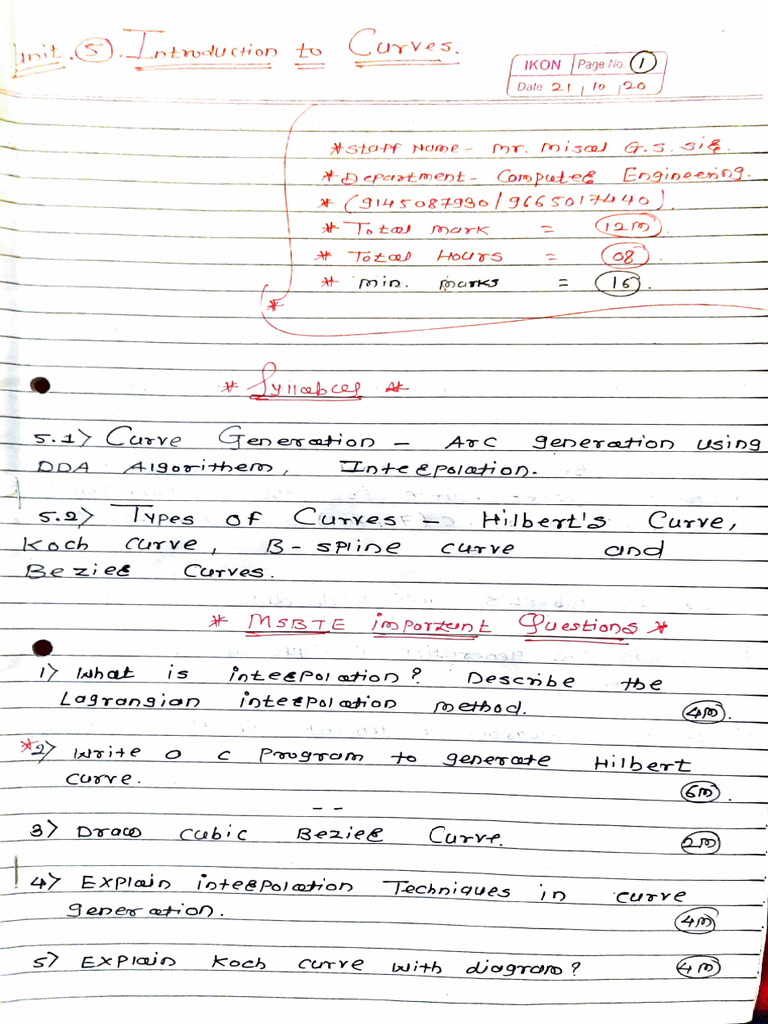 Unit. 5. Introduction to Curves.
IKON Page No. 1
Date 21 10 20
* Staff Name - Mr. Misal G.S. Sir.
* Department - Computer Engineering.
* (9145087930/9665017440).
* Total mark = 12m.
* Total Hours = 08.
* Min. marks = 16.
*
* Syllabus *
5.1> Curve Generation - Arc generation using
DDA Algorithem, Interpolation.
5.2> Types of Curves - Hilbert's Curve,
Koch curve, B-spline curve and
Bezier Curves.
* MSBTE important Questions *
1> What is interpolation? Describe the
Lagrangian interpolation method. 4m.
*2> Write a c program to generate Hilbert
curve. 6m.
3> Draw cubic Bezier Curve. 2m
4> Explain interpolation Techniques in curve
generation. 4m
5> Explain Koch curve with diagram? 4m